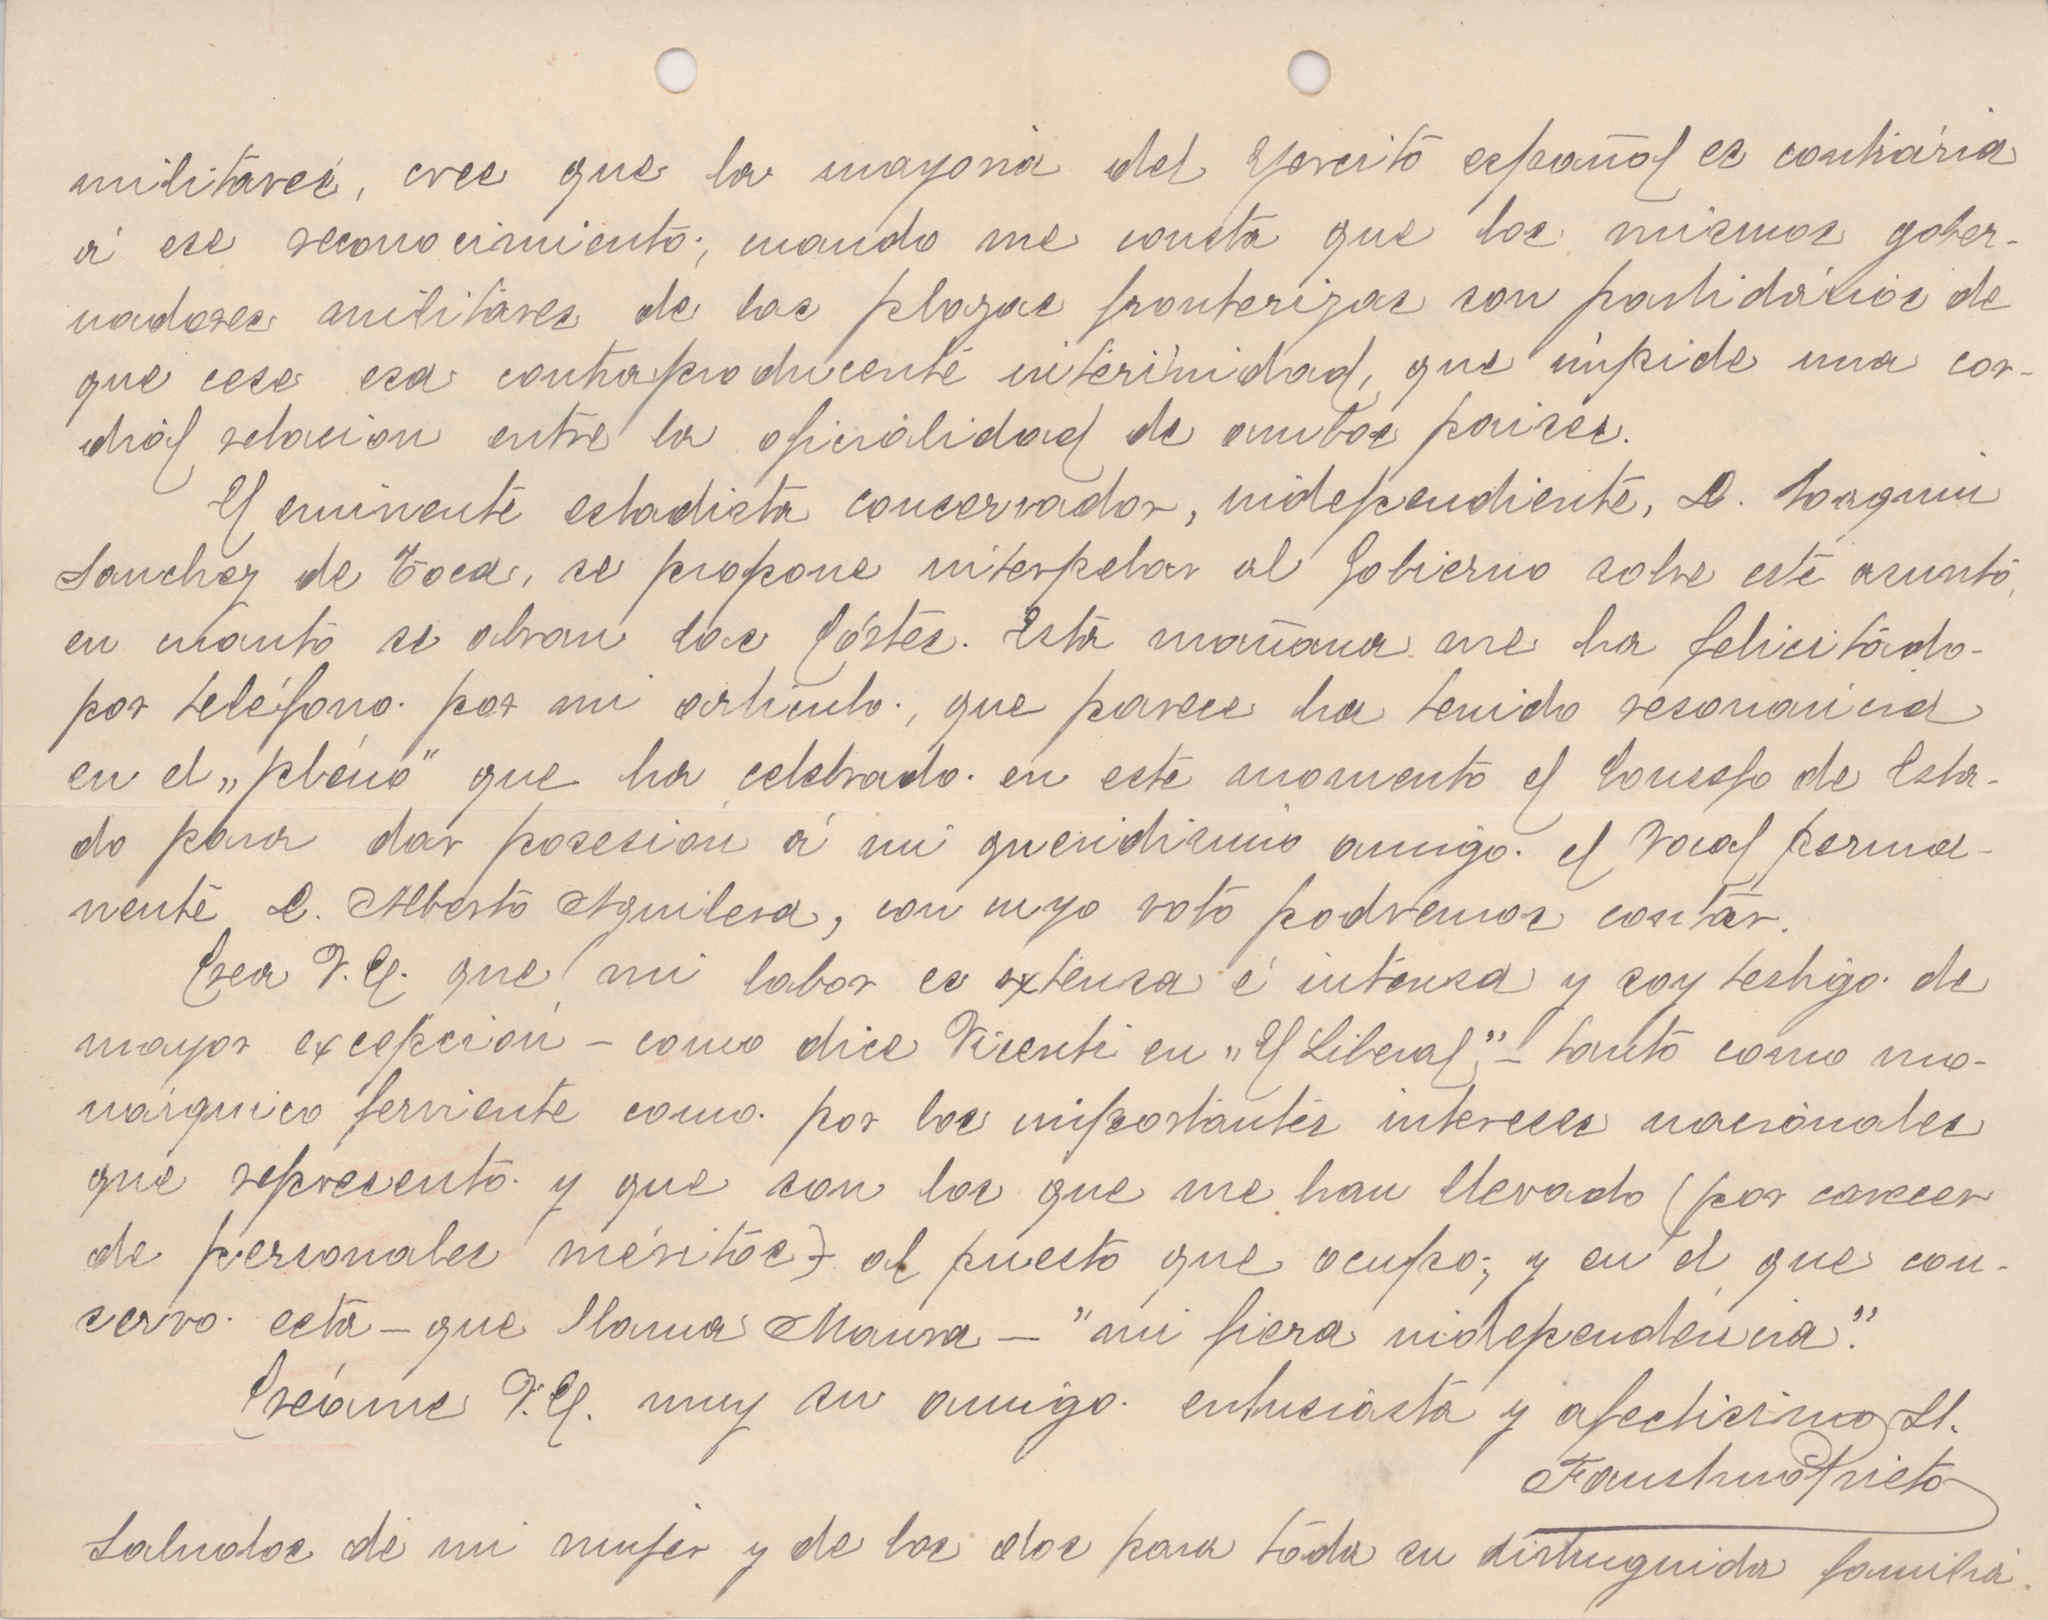 militáres, cree que la mayoria del Ejercito español es contrária
á ese reconocimiento; cuando me consta que los mismos gober-
nadores militáres de las plazas fronterizas son partidários de
que cese esa contraproducente interinidad, que impide una cor-
diál relacion entre la oficialidad de ambos paises.
El eminente estadista conservador, independiente, D. Joaquin
Sanchez de Toca, se propone interpelar al Gobierno sobre este asunto,
en cuanto se abran las Córtes. Esta mañana me ha felicitado
por teléfono por mi articulo, que parece ha tenido resonancia
en el „pleno" que ha celebrado en este momento el Consejo de Esta-
do para dar posesion á mi queridisimo amigo el Vocal perma-
nente D. Alberto Aguilera, con cuyo voto podremos contar.
Crea V.E. que mi labor es extensa é intensa y soy testigo de
mayor excepción – como dice Vicenti en „El Liberal", – tanto como mo-
nárquico ferviente como por los importantes intereses nacionales
que represento y que son los que me han llevado (por carecer
de personales méritos) al puesto que ocupo; y en el que con-
servo esta – que llama Maura – "mi fiera independéncia".
Créame V.E. muy su amigo entusiasta y afectisimo
Faustino Prieto
Saludos de mi mujer y de los dos para toda su distinguida familia.